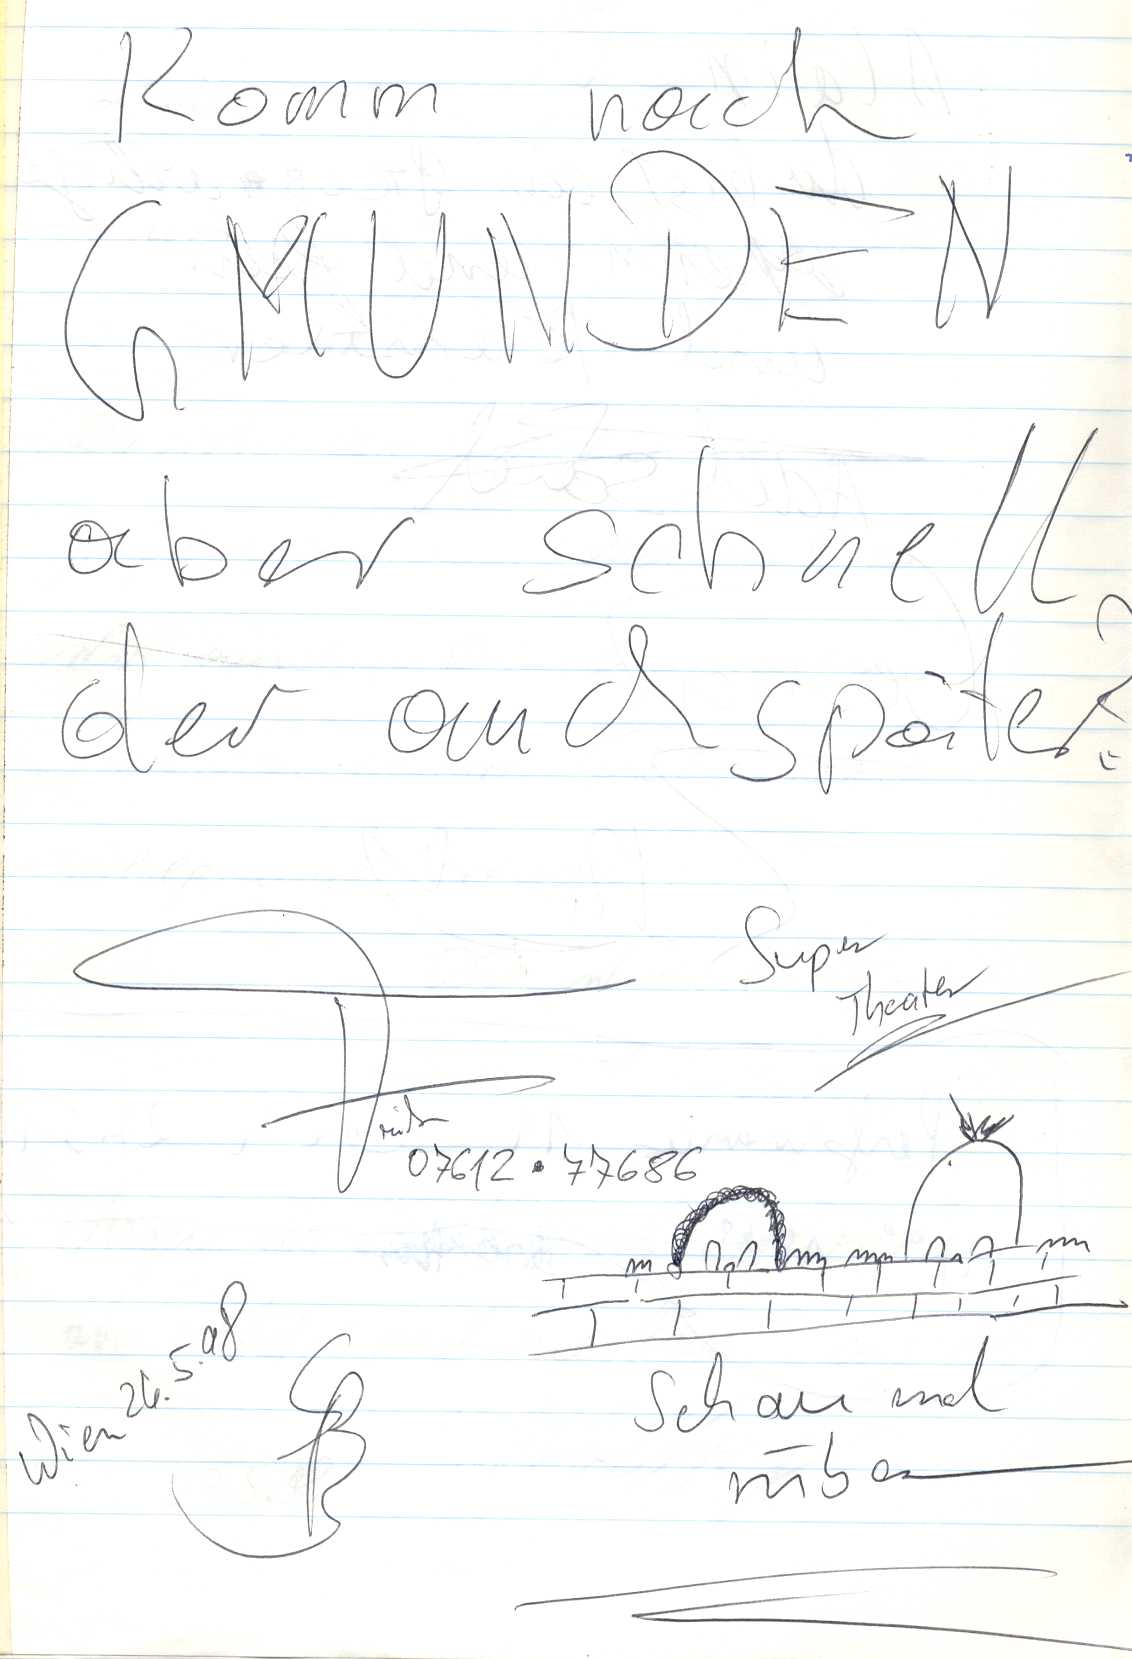 Komm nach
GMUNDEN
aber schnell
der auch später?
Super
Theater
07612 • 77686
Wien 26.5.98
Schau mal
rüber